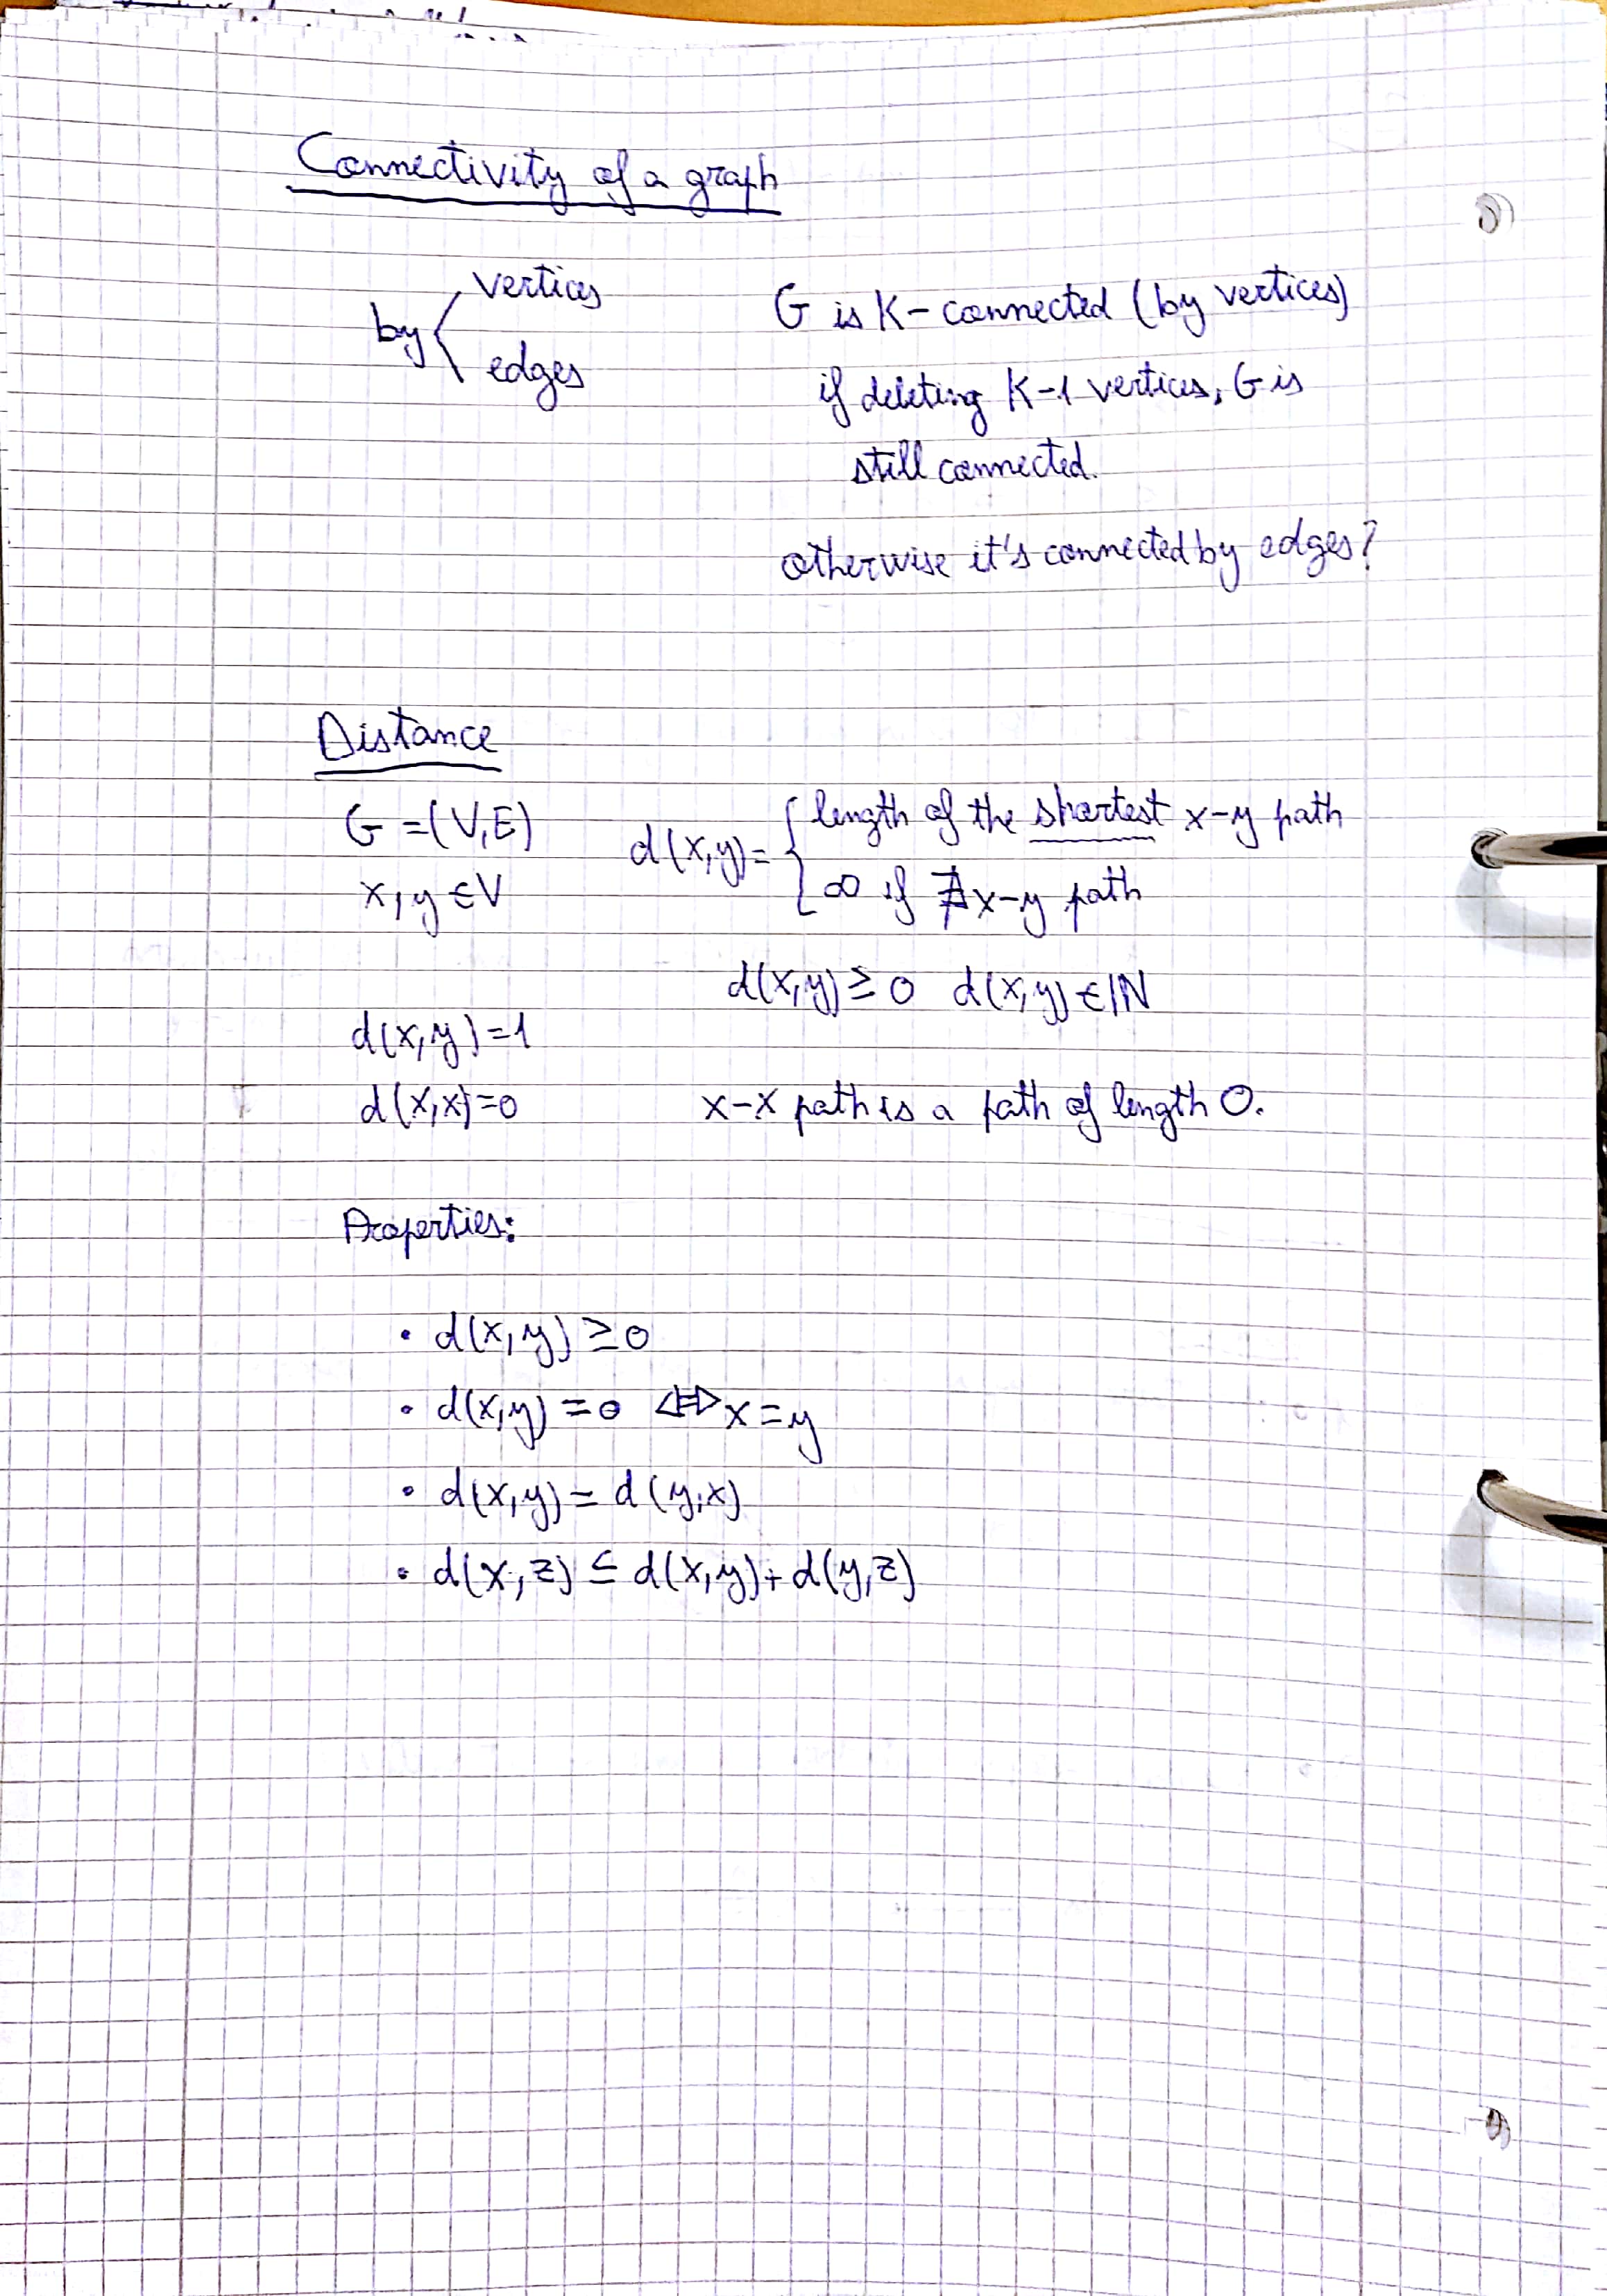 Connectivity of a graph
by { vertices
edges
G is K-connected (by vertices)
if deleting K-1 vertices, G is
still connected.
otherwise it's connected by edges?
Distance
G =(V,E)
x,y ∈ V
d(x,y)= { length of the shortest x-y path
∞ if ∄ x-y path
d(x,y) ≥ 0 d(x,y) ∈ ℕ
d(x,y)=1
d(x,x)=0 x-x path is a path of length 0.
Properties:
• d(x,y) ≥ 0
• d(x,y) = 0 ⇔ x=y
• d(x,y) = d(y,x)
• d(x,z) ≤ d(x,y)+d(y,z)